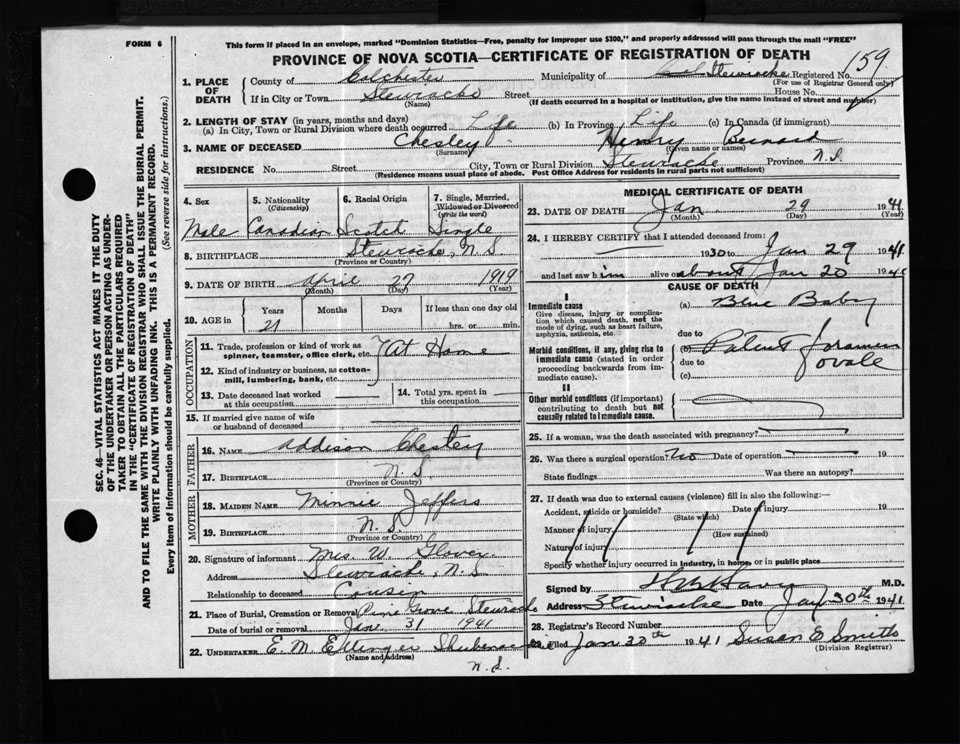 FORM 6
This form if placed in an envelope, marked "Dominion Statistics—Free, penalty for improper use $300," and properly addressed will pass through the mail "FREE"
PROVINCE OF NOVA SCOTIA—CERTIFICATE OF REGISTRATION OF DEATH
159
1. PLACE OF DEATH
County of Colchester Municipality of Stewiacke Registered No.
(For use of Registrar General only)
If in City or Town Stewiacke Street House No.
(Name) (If death occurred in a hospital or institution, give the name instead of street and number)
2. LENGTH OF STAY (in years, months and days)
(a) In City, Town or Rural Division where death occurred Life (b) In Province Life (c) In Canada (if immigrant)
3. NAME OF DECEASED Chesley Henry Bernard
(Surname) (Given name or names)
RESIDENCE No. Street City, Town or Rural Division Stewiacke Province N.S
(Residence means usual place of abode. Post Office Address for residents in rural parts not sufficient)
4. Sex 5. Nationality (Citizenship) 6. Racial Origin 7. Single, Married, Widowed or Divorced (write the word)
Male Canadian Scotch Single
8. BIRTHPLACE Stewiacke, N.S
(Province or Country)
9. DATE OF BIRTH April 27 1919
(Month) (Day) (Year)
10. AGE in Years Months Days If less than one day old
21 hrs. or min.
OCCUPATION
11. Trade, profession or kind of work as spinner, teamster, office clerk, etc. At Home
12. Kind of industry or business, as cotton-mill, lumbering, bank, etc.
13. Date deceased last worked at this occupation
14. Total yrs. spent in this occupation
15. If married give name of wife or husband of deceased
FATHER
16. NAME Addison Chesley
17. BIRTHPLACE N.S
(Province or Country)
MOTHER
18. MAIDEN NAME Minnie Jeffers
19. BIRTHPLACE N.S.
(Province or Country)
20. Signature of informant Mrs. W.
Address Stewiacke, N.S
Relationship to deceased Cousin
21. Place of Burial, Cremation or Removal Pine Grove Stewiacke
Date of burial or removal Jan. 31 1941
22. UNDERTAKER E. M. Ettinger Shubenacadie
(Name and address)
N.S.
MEDICAL CERTIFICATE OF DEATH
23. DATE OF DEATH Jan. 29 1941
(Month) (Day) (Year)
24. I HEREBY CERTIFY that I attended deceased from:
1930 to Jan 29 1941
and last saw him alive on about Jan 20 1941
CAUSE OF DEATH
I
Immediate cause
Give disease, injury or complication which caused death, not the mode of dying, such as heart failure, asphyxia, asthenia, etc.
(a) Blue Baby
due to
Morbid conditions, if any, giving rise to immediate cause (stated in order proceeding backwards from immediate cause).
(b) Patent foramen ovale
due to
(c)
II
Other morbid conditions (if important) contributing to death but not causally related to immediate cause.
25. If a woman, was the death associated with pregnancy?
26. Was there a surgical operation? No Date of operation 19
State findings Was there an autopsy?
27. If death was due to external causes (violence) fill in also the following:—
Accident, suicide or homicide? Date of injury 19
(State which)
Manner of injury
(How sustained)
Nature of injury
Specify whether injury occurred in industry, in home, or in public place
Signed by M.D.
Address Stewiacke Date Jan 30th 1941
28. Registrar's Record Number
29. Filed Jan 30th 1941 Susan E Smith
(Division Registrar)
SEC. 46—VITAL STATISTICS ACT MAKES IT THE DUTY
OF THE UNDERTAKER OR PERSON ACTING AS UNDERTAKER TO OBTAIN ALL THE PARTICULARS REQUIRED
IN THE "CERTIFICATE OF REGISTRATION OF DEATH"
AND TO FILE THE SAME WITH THE DIVISION REGISTRAR WHO SHALL ISSUE THE BURIAL PERMIT.
WRITE PLAINLY WITH UNFADING INK. THIS IS A PERMANENT RECORD.
Every item of information should be carefully supplied. (See reverse side for instructions.)